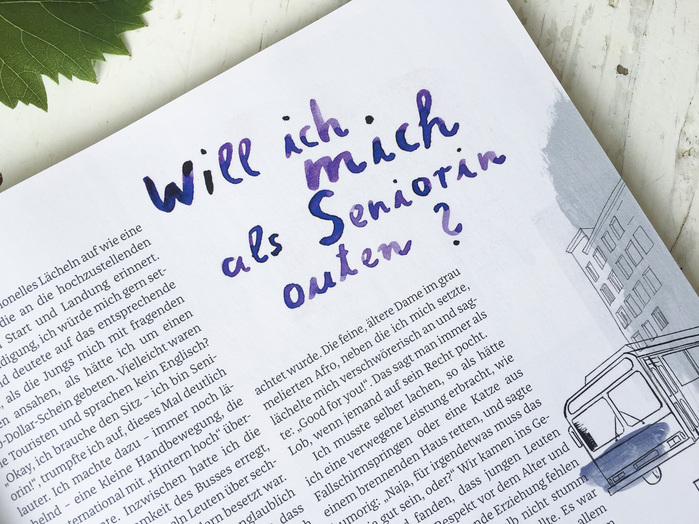 Will ich
mich
als Seniorin
outen?
ionelles Lächeln auf wie eine
die an die hochzustellenden
Start und Landung erinnert.
digung, ich würde mich gern set-
d deutete auf das entsprechende
als die Jungs mich mit fragenden
en ansahen, als hätte ich um einen
-Dollar-Schein gebeten. Vielleicht waren
e Touristen und sprachen kein Englisch?
„Okay, ich brauche den Sitz – ich bin Seni-
orin!", trumpfte ich auf, dieses Mal deutlich
lauter. Ich machte dazu – immer noch lä-
chelnd – eine kleine Handbewegung, die
international mit „Hintern hoch" über-
Inzwischen hatte ich die
mkeit des Busses erregt,
n Leuten über sech-
dern besetzt war.
nglaublich
dass
achtet wurde. Die feine, ältere Dame im grau
melierten Afro, neben die ich mich setzte,
lächelte mich verschwörerisch an und sag-
te: „Good for you!". Das sagt man immer als
Lob, wenn jemand auf sein Recht pocht.
Ich musste selber lachen, so als hätte
ich eine verwegene Leistung erbracht, wie
Fallschirmspringen oder eine Katze aus
einem brennenden Haus retten, und sagte
humorig: „Naja, für irgendetwas muss das
ja gut sein, oder?" Wir kamen ins Ge-
fanden, dass jungen Leuten
Respekt vor dem Alter und
nde Erziehung fehlen
nicht stumm
Es war
allem